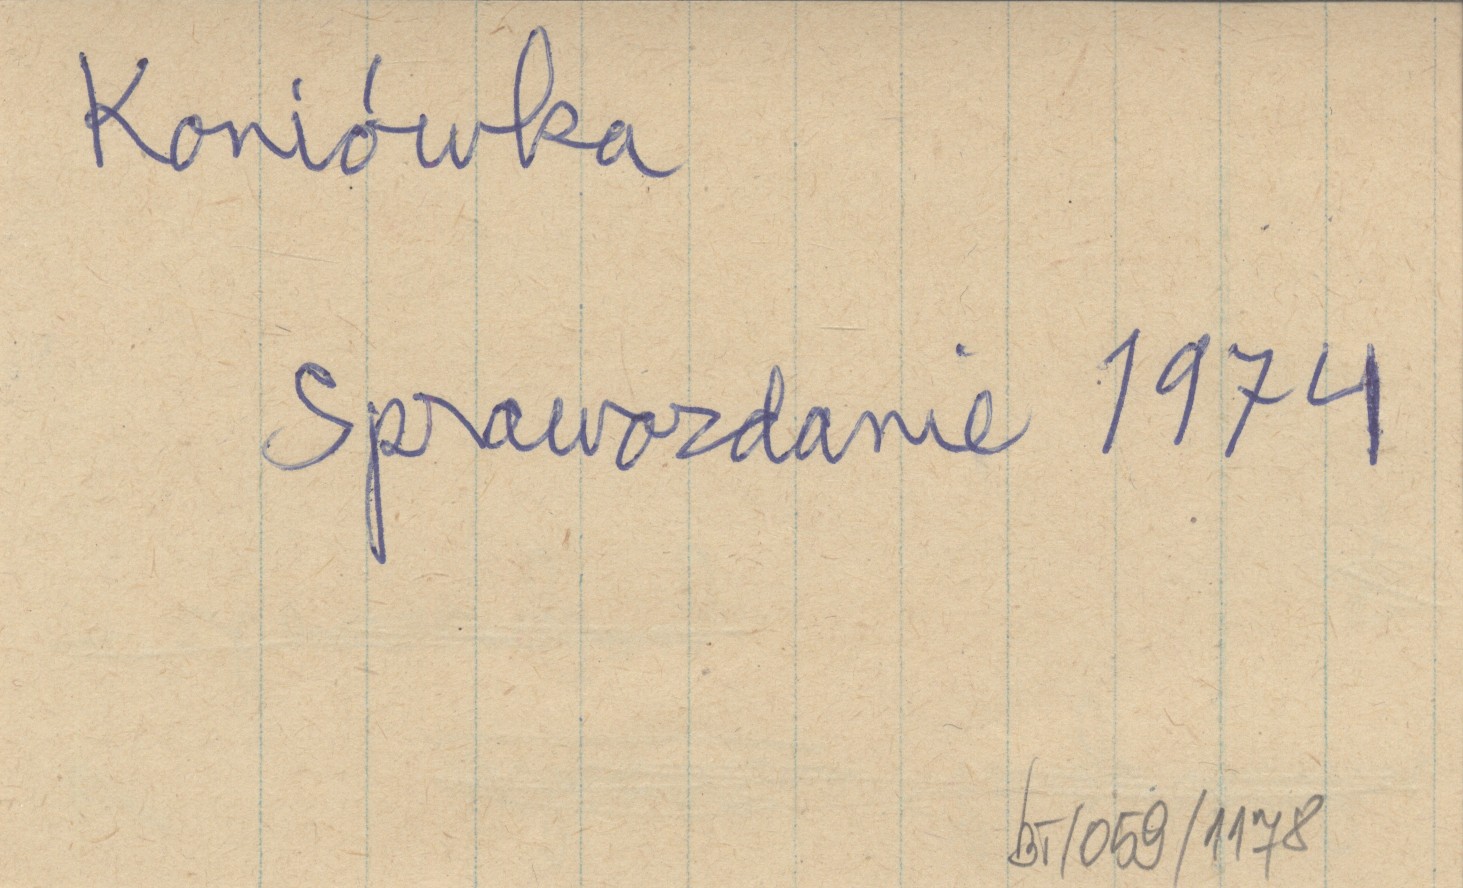 Koniówka
Sprawozdanie 1974
BT/059/1178